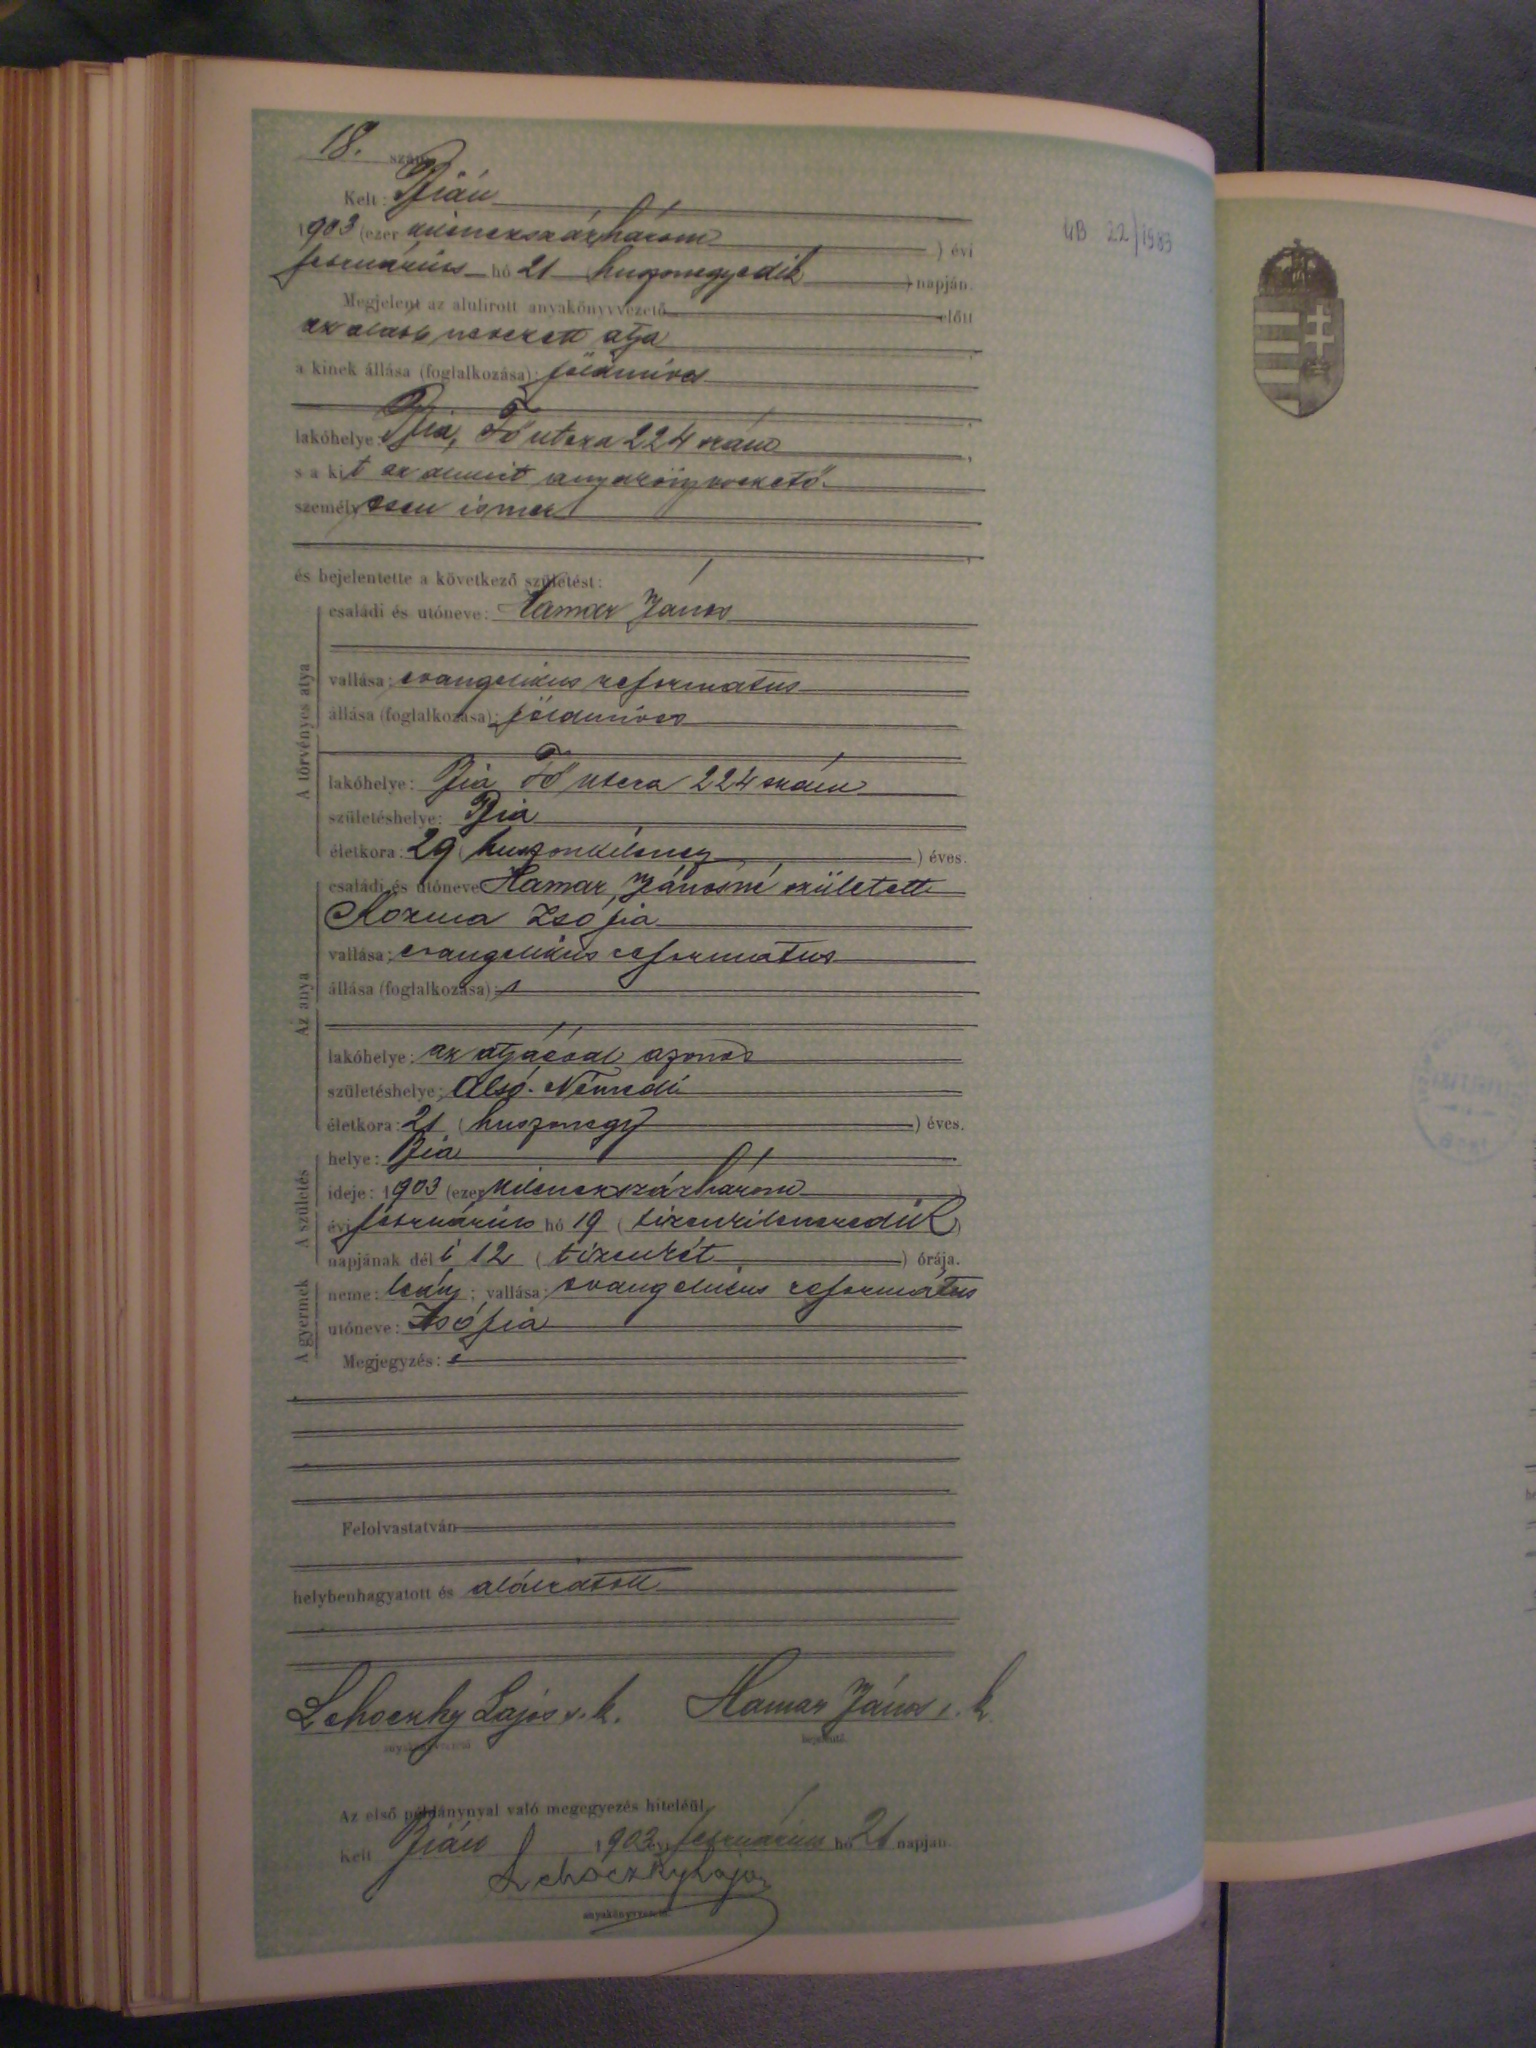 18. szám
Kelt: Bián
1903 (ezer kilenczszázhárom ) évi
február hó 21 huszonegyedik ) napján.
Megjelent az alulirott anyakönyvvezető előtt
az alább nevezett atya
a kinek állása (foglalkozása): földmíves
lakóhelye: Bia, Fő utcza 224 szám
s a kit az alulirt anyakönyvvezető
személyesen ismer
és bejelentette a következő születést:
A törvényes atya
családi és utóneve: Hamar János
vallása: evangelikus reformatus
állása (foglalkozása): földmíves
lakóhelye: Bia Fő utcza 224 szám
születéshelye: Bia
életkora: 29 ( huszonkilencz ) éves.
Az anya
családi és utóneve Hamar Jánosné született
Kozma Zsófia
vallása: evangelikus reformatus
állása (foglalkozása):
lakóhelye: az atyáéval azonos
születéshelye: Alsó-Némedi
életkora: 21 ( huszonegy ) éves.
A születés
helye: Bia
ideje: 1903 (ezer kilenczszázhárom )
évi február hó 19 ( tizenkilenczedik )
napjának dél i 12 ( tizenkét ) órája.
A gyermek
neme: leány; vallása: evangelikus református
utóneve: Zsófia
Megjegyzés:
Felolvastatván
helybenhagyatott és aláiratott
Lehoczky Lajos s. k. Hamar János s. k.
anyakönyvvezető bejelentő.
Az első példánynyal való megegyezés hiteléül.
Kelt Bián 1903 évi február hó 21 napján.
Lehoczky Lajos
anyakönyvvezető
22/1983